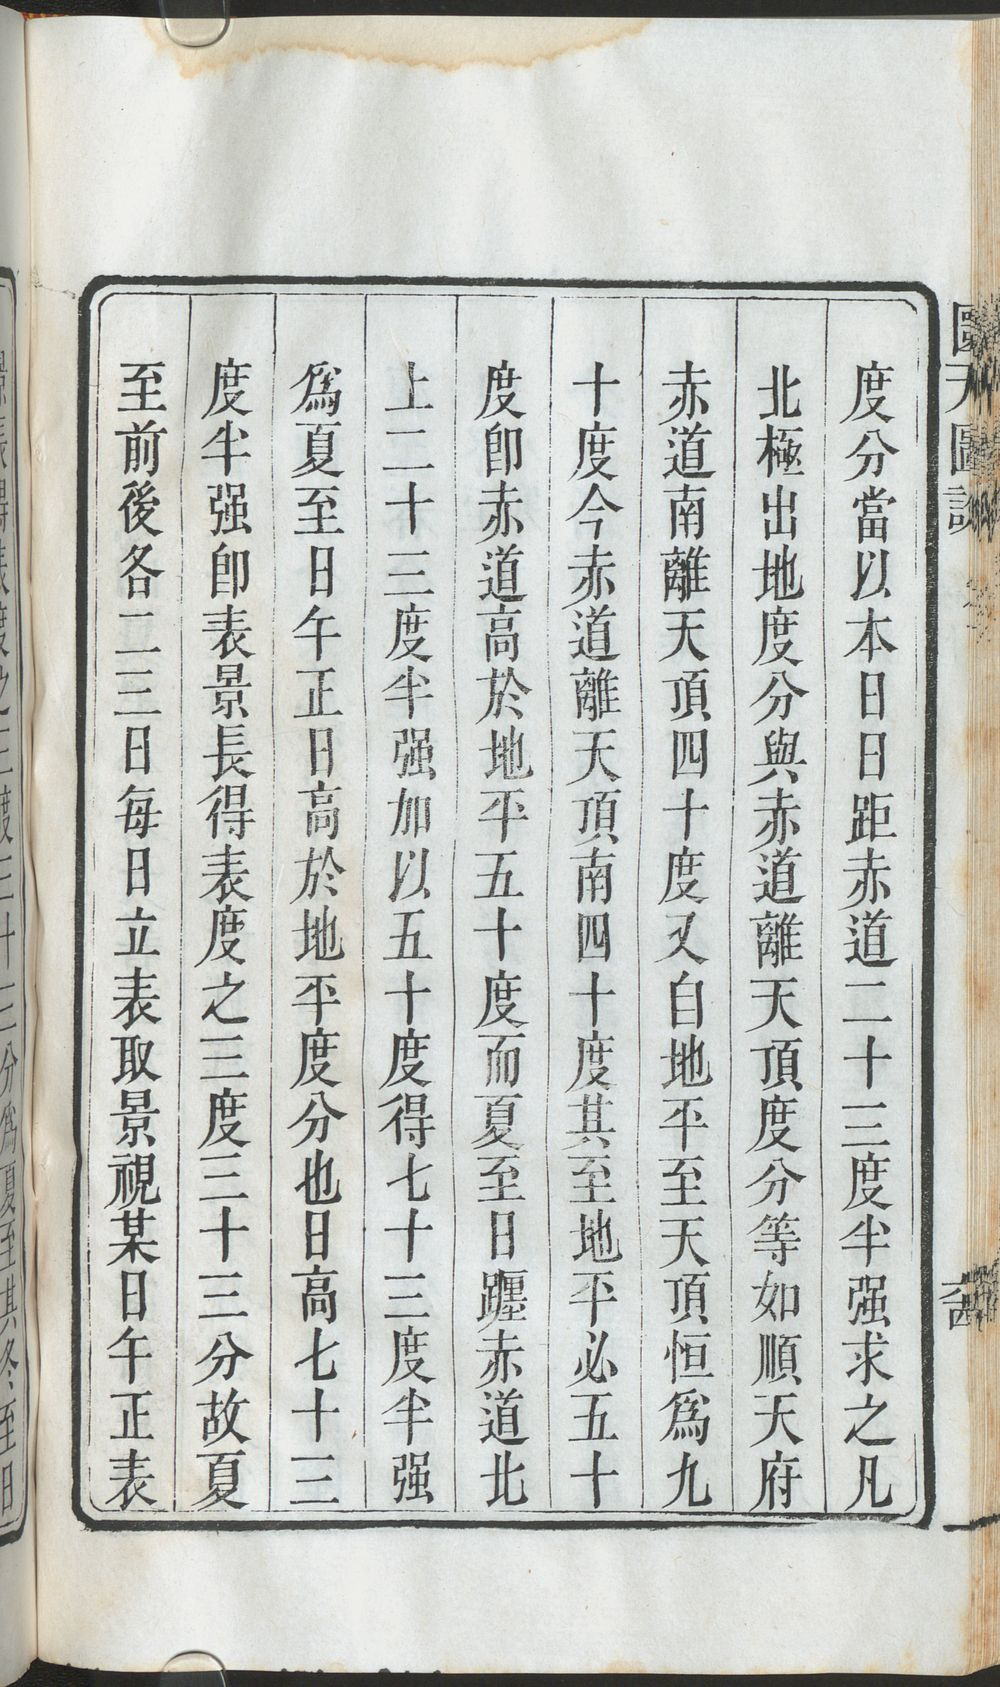 度分當以本日日距赤道二十三度半强求之凡
北極出地度分與赤道離天頂度分等如順天府
赤道南離天頂四十度又自地平至天頂恒爲九
十度今赤道離天頂南四十度其至地平必五十
度卽赤道高於地平五十度而夏至日躔赤道北
上二十三度半强加以五十度得七十三度半强
爲夏至日午正日高於地平度分也日高七十三
度半强卽表景長得表度之三度三十三分故夏
至前後各二三日每日立表取景視某日午正表